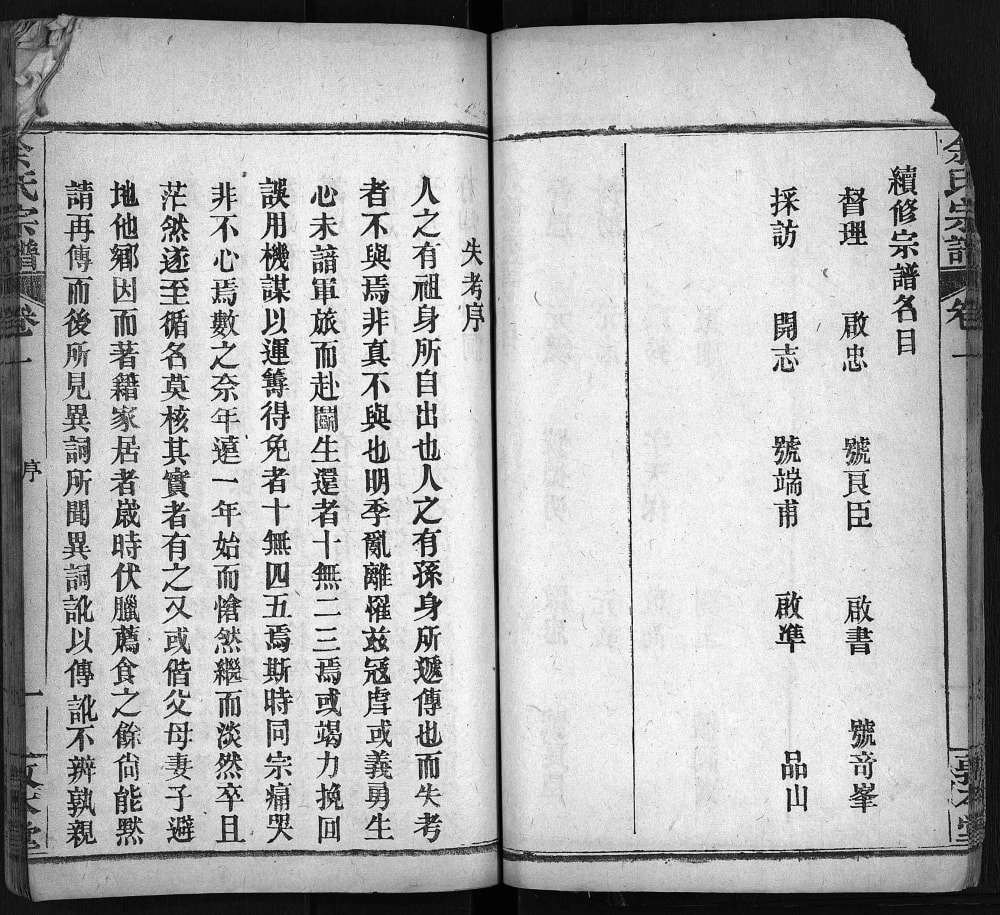 余氏宗譜 卷一
續修宗譜名目
督理 啟忠 號良臣 啟書 號竒峯
採訪 開志 號端甫 啟準 品山
失考序
人之有祖身所自出也人之有孫身所遞傳也而失考
者不與焉非真不與也明季亂離罹兹寇虐或義勇生
心未諳軍旅而赴鬬生還者十無二三焉或竭力挽回
誤用機謀以運籌得免者十無四五焉斯時同宗痛哭
非不心焉數之奈年遠一年始而愴然繼而淡然卒且
茫然遂至循名莫核其實者有之又或偕父母妻子避
地他鄉因而著籍家居者歲時伏臘薦食之餘尙能默
請再傳而後所見異詞所聞異詞訛以傳訛不辨孰親
余氏宗譜 卷一 序 一